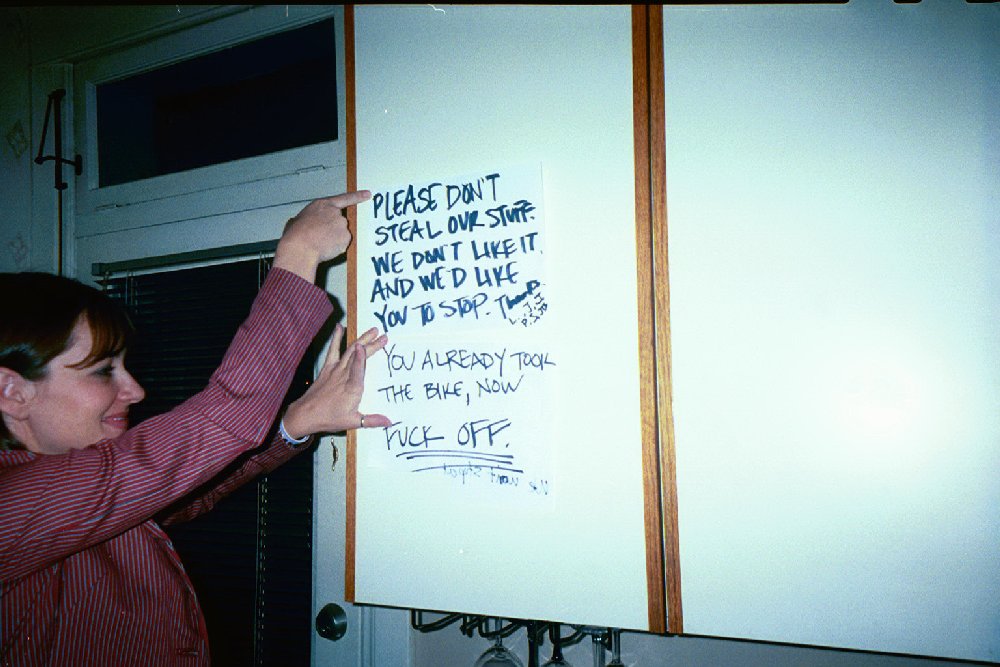 PLEASE DON'T
STEAL OUR STUFF.
WE DON'T LIKE IT.
AND WE'D LIKE
YOU TO STOP.
L. J. J.
P. S. JB
YOU ALREADY TOOK
THE BIKE, NOW
FUCK OFF.